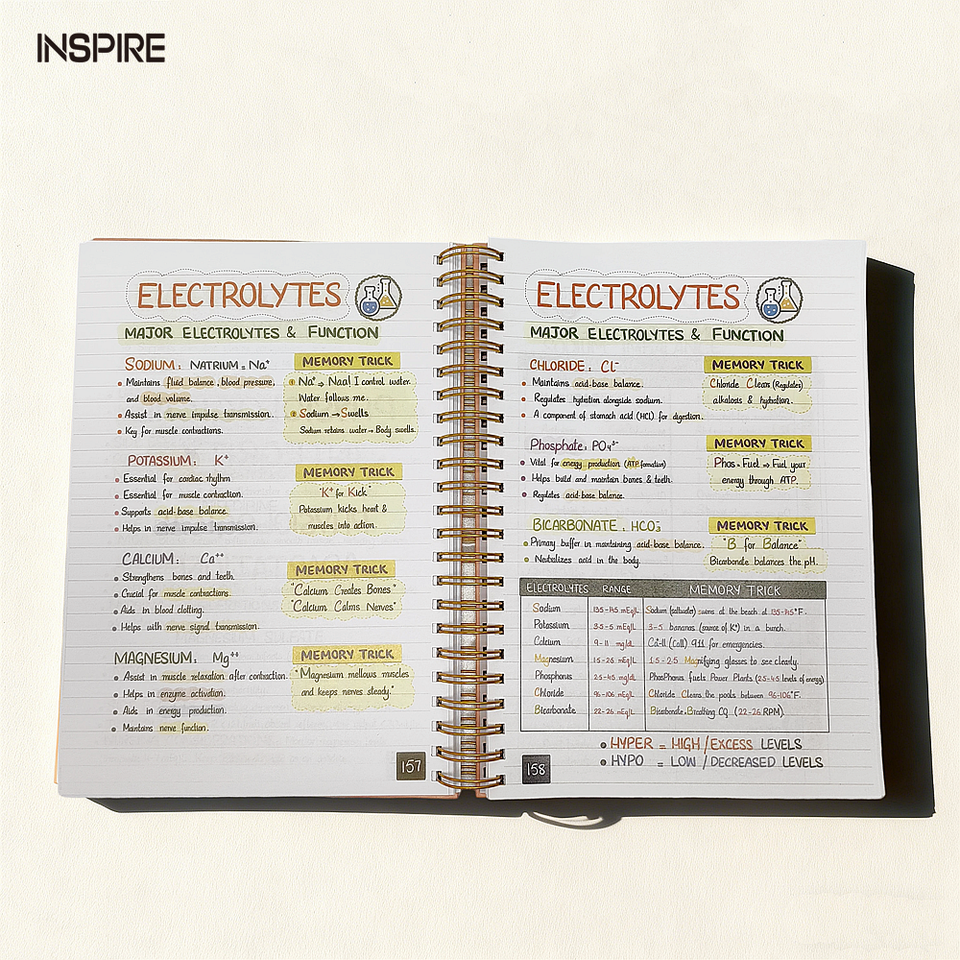 INSPIRE
ELECTROLYTES
MAJOR ELECTROLYTES & FUNCTION
SODIUM: NATRIUM = Na⁺
• Maintains fluid balance, blood pressure,
and blood volume.
• Assist in nerve impulse transmission.
• Key for muscle contractions.
MEMORY TRICK
① Na⁺ → Naa! I control water.
Water follows me.
② Sodium → Swells
Sodium retains water → Body swells.
POTASSIUM: K⁺
• Essential for cardiac rhythm
• Essential for muscle contraction.
• Supports acid-base balance.
• Helps in nerve impulse transmission.
MEMORY TRICK
"K⁺ for Kick"
Potassium kicks heart &
muscles into action.
CALCIUM: Ca⁺⁺
• Strengthens bones and teeth.
• Crucial for muscle contractions.
• Aids in blood clotting.
• Helps with nerve signal transmission.
MEMORY TRICK
"Calcium Creates Bones"
"Calcium Calms Nerves"
MAGNESIUM: Mg⁺⁺
• Assist in muscle relaxation after contraction.
• Helps in enzyme activation.
• Aids in energy production.
• Maintains nerve function.
MEMORY TRICK
"Magnesium mellows muscles
and keeps nerves steady."
157
ELECTROLYTES
MAJOR ELECTROLYTES & FUNCTION
CHLORIDE: Cl⁻
• Maintains acid-base balance.
• Regulates hydration alongside sodium.
• A component of stomach acid (HCl) for digestion.
MEMORY TRICK
Chloride Clears (Regulates)
alkalosis & hydration.
Phosphate: PO₄³⁻
• Vital for energy production (ATP formation)
• Helps build and maintain bones & teeth.
• Regulates acid-base balance.
MEMORY TRICK
Phos = Fuel → Fuel your
energy through ATP.
BICARBONATE: HCO₃
• Primary buffer in maintaining acid-base balance.
• Neutralizes acid in the body.
MEMORY TRICK
"B for Balance"
Bicarbonate balances the pH.
ELECTROLYTES RANGE MEMORY TRICK
Sodium 135-145 mEq/L Sodium (saltwater) swims at the beach at 135-145°F.
Potassium 3.5-5 mEq/L 3-5 bananas (source of K⁺) in a bunch.
Calcium 9-11 mg/dL Ca-ll (Call) 911 for emergencies.
Magnesium 1.5-2.5 mEq/L 1.5-2.5 Magnifying glasses to see clearly.
Phosphorus 2.5-4.5 mg/dL PhosPhorus fuels Power Plants (2.5-4.5 levels of energy)
Chloride 96-106 mEq/L Chloride Cleans the pools between 96-106°F.
Bicarbonate 22-26 mEq/L Bicarbonate = Breathing CO₂ (22-26 RPM).
• HYPER = HIGH/EXCESS LEVELS
• HYPO = LOW/DECREASED LEVELS
158